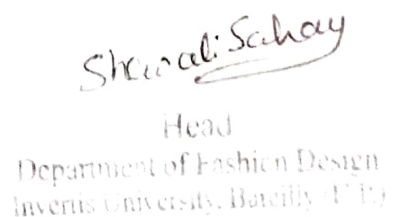 Shewali Sahay
Head
Department of Fashion Design
Invertis University, Bareilly (U.P.)